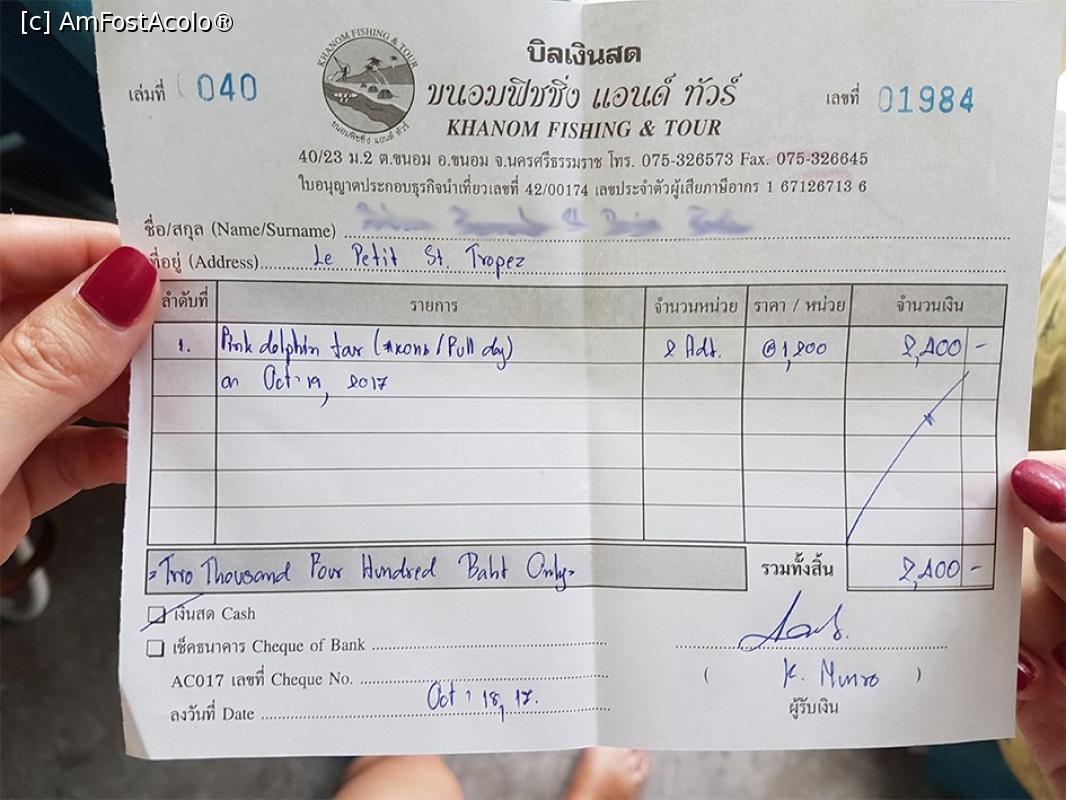 [c] AmFostAcolo®
บิลเงินสด
เล่มที่ 040
KHANOM FISHING & TOUR
ขนอมฟิชชิ่ง แอนด์ ทัวร์
ขนอมฟิชชิ่ง แอนด์ ทัวร์
เลขที่ 01984
KHANOM FISHING & TOUR
40/23 ม.2 ต.ขนอม อ.ขนอม จ.นครศรีธรรมราช โทร. 075-326573 Fax. 075-326645
ใบอนุญาตประกอบธุรกิจนำเที่ยวเลขที่ 42/00174 เลขประจำตัวผู้เสียภาษีอากร 1 67126713 6
ชื่อ/สกุล (Name/Surname)
ที่อยู่ (Address) Le Petit St. Tropez
ลำดับที่ รายการ จำนวนหน่วย ราคา / หน่วย จำนวนเงิน
1. Pink dolphin tour ( /Full day) 2 Adt. @1,200 2,400 -
on Oct 19, 2017
=Two Thousand Four Hundred Baht Only= รวมทั้งสิ้น 2,400 -
เงินสด Cash
เช็คธนาคาร Cheque of Bank
AC017 เลขที่ Cheque No.
( K. Munro )
ลงวันที่ Date Oct 18, 17.
ผู้รับเงิน